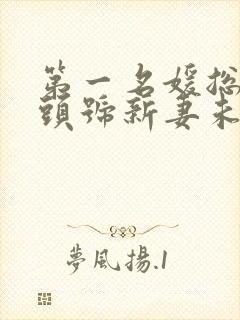 第一名媛总
頭號新妻未
夢風揚.1